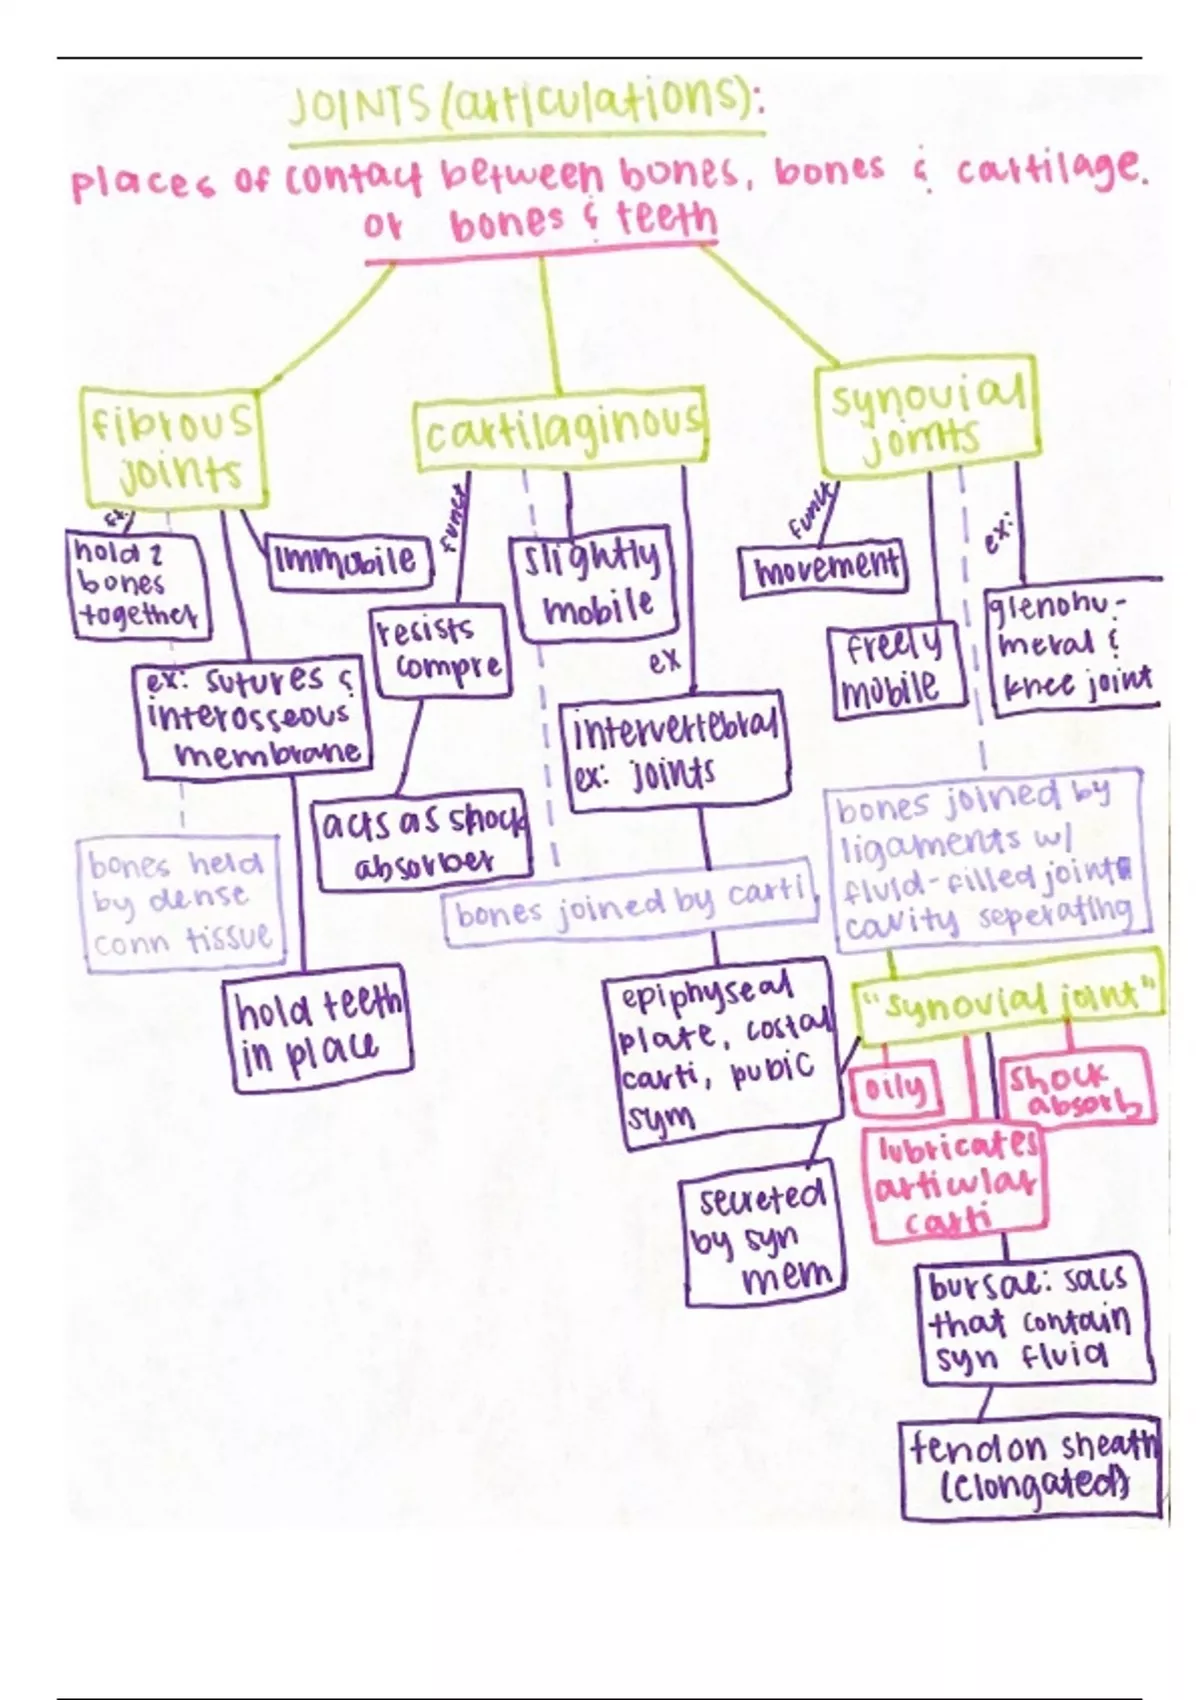 JOINTS (articulations):
places of contact between bones, bones & cartilage.
or bones & teeth
fibrous
joints
cartilaginous
synovial
joints
ex:
hold 2
bones
together
immobile
ex: sutures &
interosseous
membrane
bones held
by dense
conn tissue
hold teeth
in place
funct
resists
compre
acts as shock
absorber
slightly
mobile
ex
intervertebral
ex: joints
bones joined by carti
epiphyseal
plate, costal
carti, pubic
sym
secreted
by syn
mem
funct
movement
freely
mobile
ex:
glenohu-
meral &
knee joint
bones joined by
ligaments w/
fluid-filled joint
cavity seperating
"synovial joint"
oily
shock
absorb
lubricates
articular
carti
bursae: sacs
that contain
syn fluid
tendon sheath
(elongated)